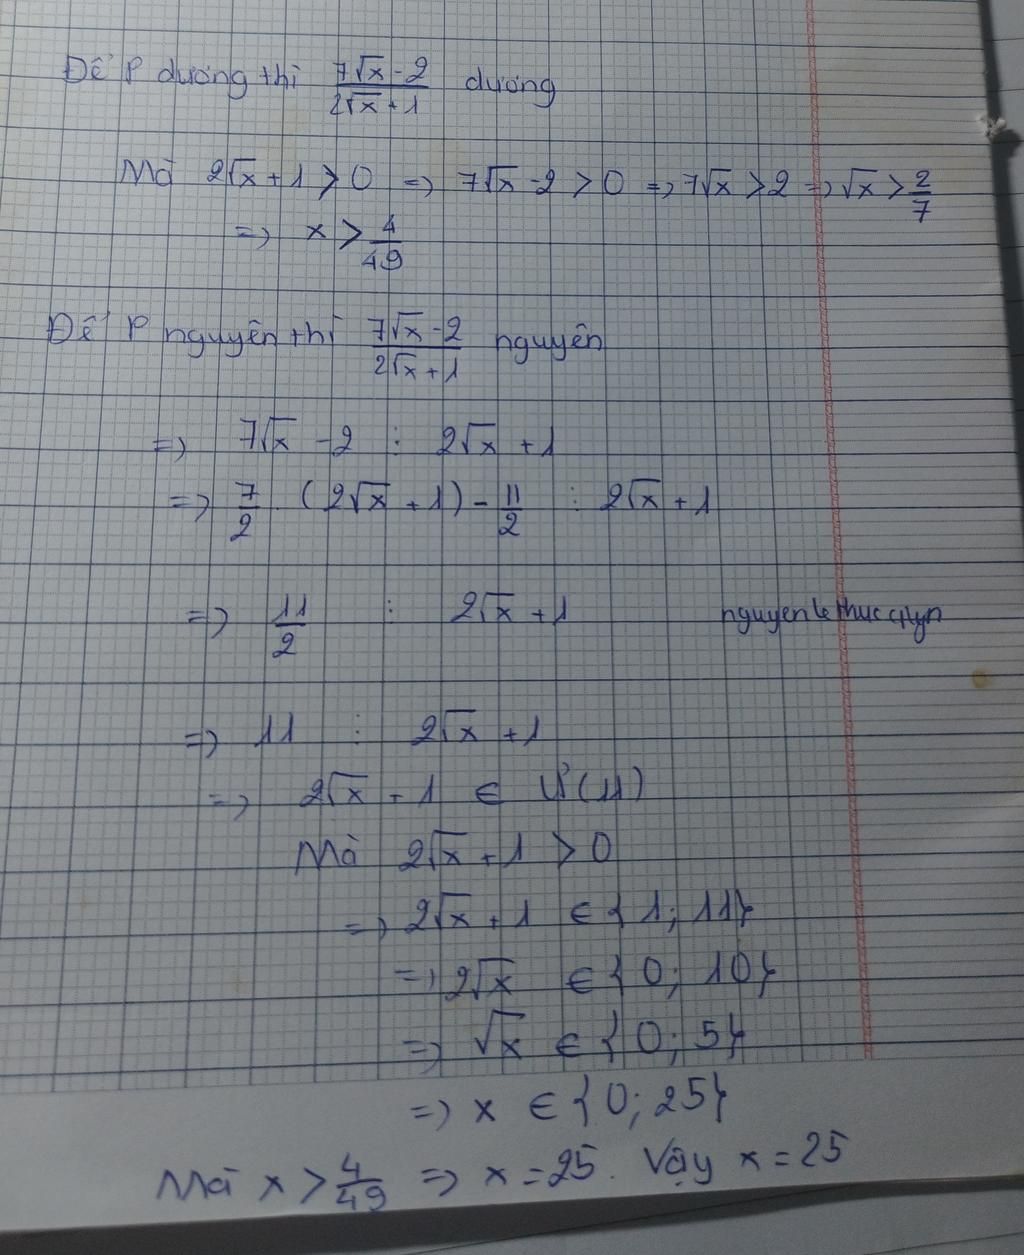 Để P dương thì \frac{7√x - 2}{2√x + 1} dương
Mà 2√x + 1 > 0 => 7√x - 2 > 0 => 7√x > 2 => √x > \frac{2}{7}
=> x > \frac{4}{49}
Để P nguyên thì \frac{7√x - 2}{2√x + 1} nguyên
=> 7√x - 2 ⋮ 2√x + 1
=> \frac{7}{2} . (2√x + 1) - \frac{11}{2} ⋮ 2√x + 1
=> \frac{11}{2} ⋮ 2√x + 1 nguyenlethuc
=> 11 ⋮ 2√x + 1
=> 2√x + 1 ∈ Ư(11)
Mà 2√x + 1 > 0
=> 2√x + 1 ∈ {1; 11}
=> 2√x ∈ {0; 10}
=> √x ∈ {0; 5}
=> x ∈ {0; 25}
Mà x > \frac{4}{49} => x = 25. Vậy x = 25